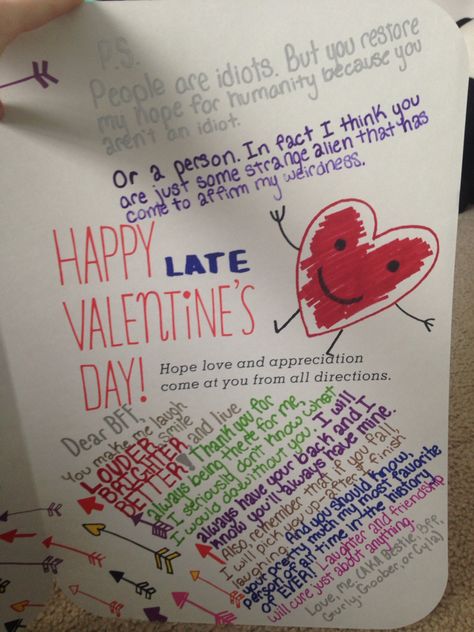 P.S.
People are idiots. But you restore
my hope for humanity because you
aren't an idiot.
Or a person. In fact I think you
are just some strange alien that has
come to affirm my weirdness.
HAPPY LATE
VALENTINE'S
DAY!
Hope love and appreciation
come at you from all directions.
Dear BFF,
You make me laugh
LOUDER
smile
BRIGHTER
and live
BETTER!
Thank you for
always being there for me,
I seriously don't know what
I would do without you. I will
always have your back and I
know you'll always have mine.
Also remember that if you fall,
I will pick you up-after I finish
laughing. And you should know,
your pretty much my most favorite
person of all time in the history
of EVER! Laughter and friendship
will cure just about anything.
Love, me (AKA Bestie, BFF,
Gurly-Goober, or Cyla)